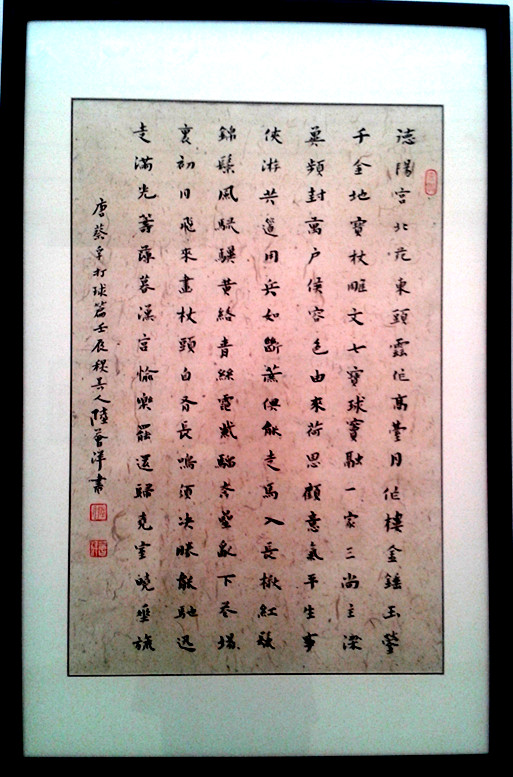 德陽宮北苑東頭雲作高臺月作樓金錘玉鎣
千金地寶杖雕文七寶球竇融一家三尚主梁
冀頻封萬戶侯容色由來荷恩顧意氣平生事
俠游共道用兵如斷蔗俱能走馬入長楸紅鬣
錦鬃風騄驥黃絡青絲電紫騮奔星亂下花場
裏初月飛來畫杖頭自有長鳴須決勝能馳迅
走滿先籌薄暮漢宮愉樂罷還歸堯室曉垂旒
唐蔡孚打球篇壬辰秋吳人陸薈洋書